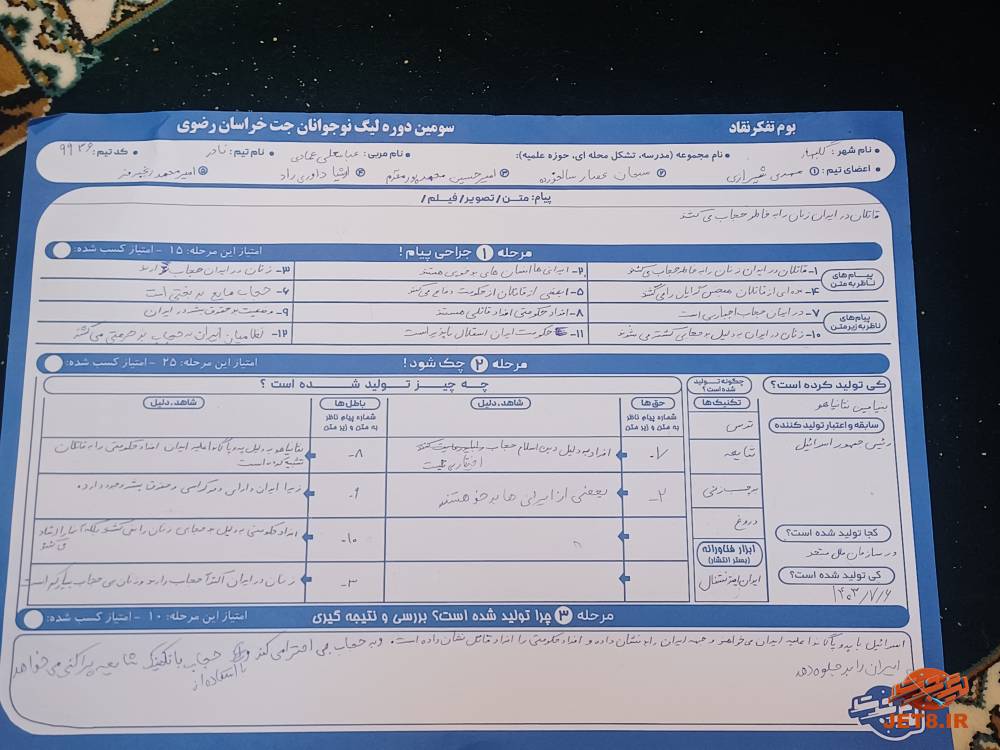 بوم تفکر نقاد
سومین دوره لیگ نوجوانان جت خراسان رضوی
نام شهر: گلبهار
نام مجموعه (مدرسه، تشکل محله ای، حوزه علمیه):
نام مربی: عباسعلی
نام تیم: نادر
کد تیم: ۹۹۳۶
اعضای تیم: ① مهدی شیرازی ② سبحان عصار سالخورده ③ امیرحسین محمدپور مقدم ④ ارشیا داوری راد ⑤ امیرمحمد
پیام: متن/ تصویر/ فیلم/
قاتلان در ایران زنان را به خاطر حجاب می کشند
مرحله ① جراحی پیام!
امتیاز این مرحله: ۱۵ - امتیاز کسب شده:
پیام‌های ناظر به متن
۱- قاتلان در ایران زنان را به خاطر حجاب می کشند
۲- ایرانی ها انسان های بدخویی هستند
۳- زنان در ایران حجاب دارند
۴- عده ای از قاتلان را می کشند
۵- بعضی از قاتلان از حکومت دفاع می کنند
۶- حجاب مایع بدبختی است
پیام‌های ناظر به زیر متن
۷- در ایران حجاب اجباری است
۸- افراد حکومتی افراد قاتلی هستند
۹- وضعیت بد حقوق بشر در ایران
۱۰- زنان در ایران به دلیل بدحجابی کشته می شوند
۱۱- حکومت ایران استقلال ناپذیر است
۱۲- نظامیان ایران به حجاب بی حرمتی می کنند
مرحله ② چک شود!
امتیاز این مرحله: ۲۵ - امتیاز کسب شده:
کی تولید کرده است؟
بنیامین نتانیاهو
سابقه و اعتبار تولیدکننده
رئیس جمهور اسرائیل
کجا تولید شده است؟
در سازمان ملل متحد
کی تولید شده است؟
۱۴۰۳/۷/۶
چگونه تولید شده است؟
تکنیک‌ها
ترس
شایعه
برچسب زنی
دروغ
ابزار فناورانه
(بستر انتشار)
ایران اینترنشنال
چه چیز تولید شده است؟
حق‌ها
شماره پیام ناظر به متن و زیر متن
شاهد، دلیل
باطل‌ها
شماره پیام ناظر به متن و زیر متن
شاهد، دلیل
۷-
افراد به دلیل دین اسلام حجاب را
اجباری نیست
۸-
نتانیاهو به دلیل پروپاگاندا علیه ایران افراد حکومتی را به قاتلان تشبیه کرده است
۲-
بعضی از ایرانی ها بدخو هستند
۹-
زیرا ایران دارای دموکراسی و حقوق بشر وجود دارد.
۱۰-
افراد حکومتی به دلیل بدحجابی زنان را نمی کشند بلکه آنها را ارشاد می کنند
۳-
زنان در ایران اکثرا حجاب دارند و زنان بی حجاب بسیار کم است
مرحله ③ چرا تولید شده است؟ بررسی و نتیجه گیری
امتیاز این مرحله: ۱۰ - امتیاز کسب شده:
اسرائیل با پروپاگاندا علیه ایران می خواهد وجهه ایران را بد نشان داده و افراد حکومتی را افراد قاتل نشان داده است. و به حجاب بی احترامی می کند و با استفاده از حجاب با تکنیک شایعه پراکنی می خواهد
ایران را بد جلوه دهد
JET8.IR